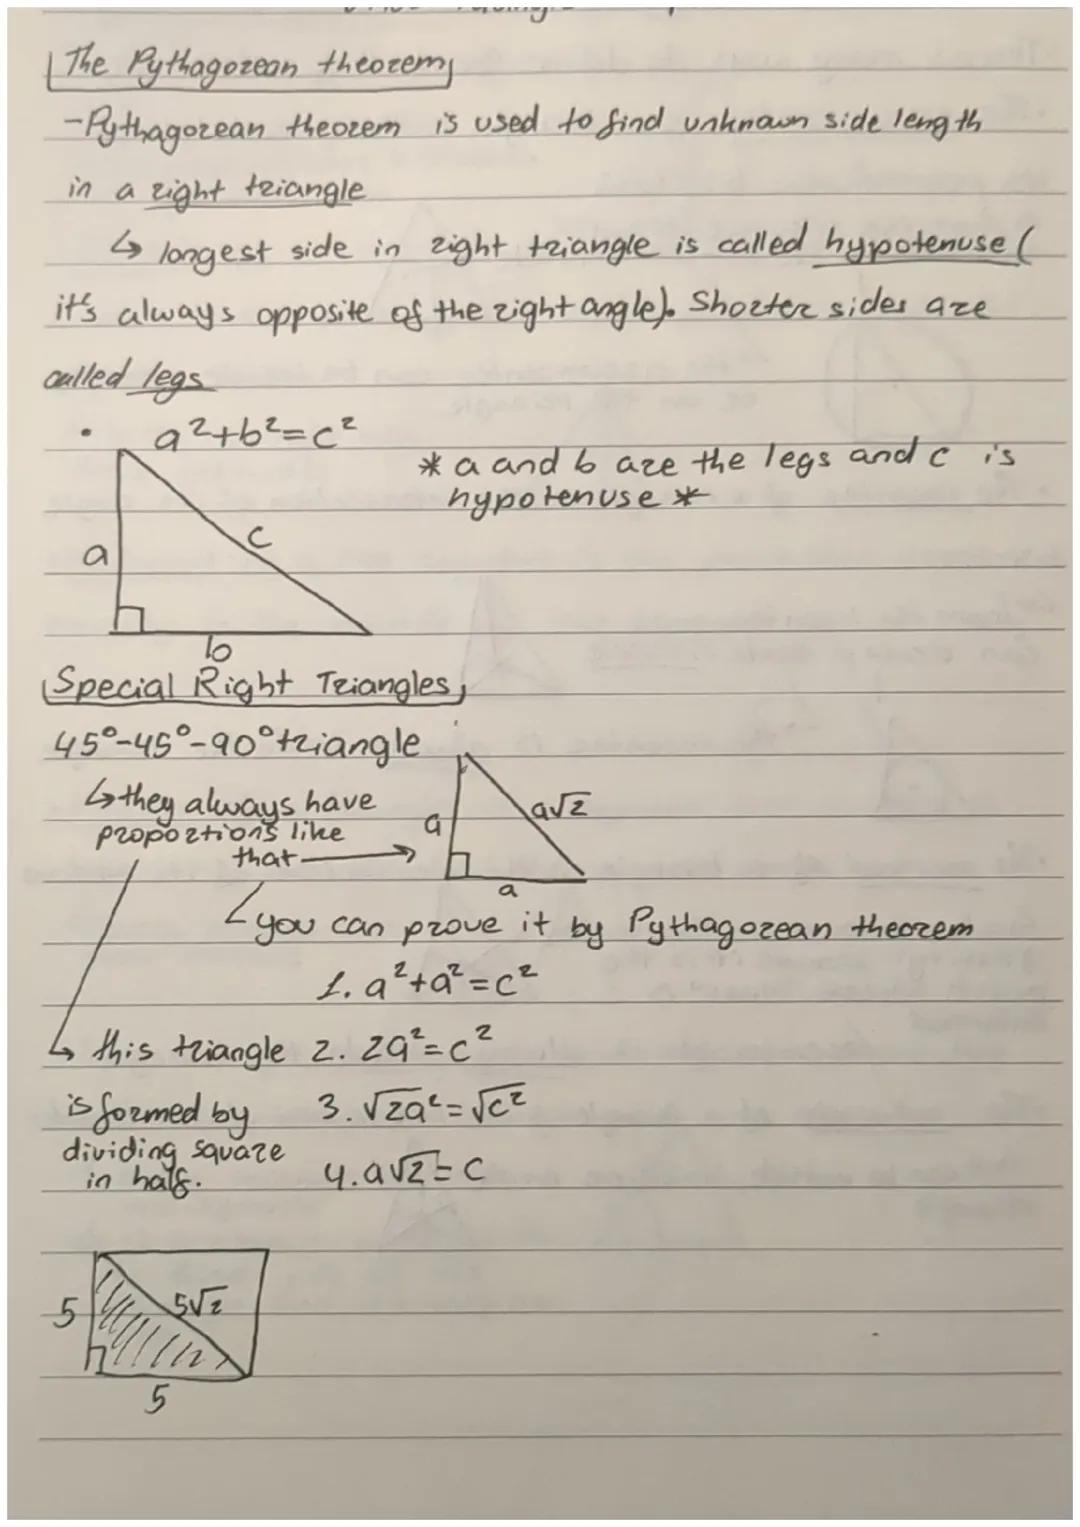 The Pythagorean theorem
-Pythagorean theorem is used to find unknown side length
in a right triangle
↳ longest side in right triangle is called hypotenuse (
it's always opposite of the right angle). Shorter sides are
called legs
• a²+b²=c²
* a and b are the legs and c is
hypotenuse *
a
c
b
Special Right Triangles
45°-45°-90° triangle
↳ they always have
proportions like
that →
a
a√2
a
you can prove it by Pythagorean theorem
1. a²+a²=c²
↳ this triangle
2. 2a²=c²
is formed by
3. √2a²=√c²
dividing square
in half.
4. a√2=c
5
5√2
5